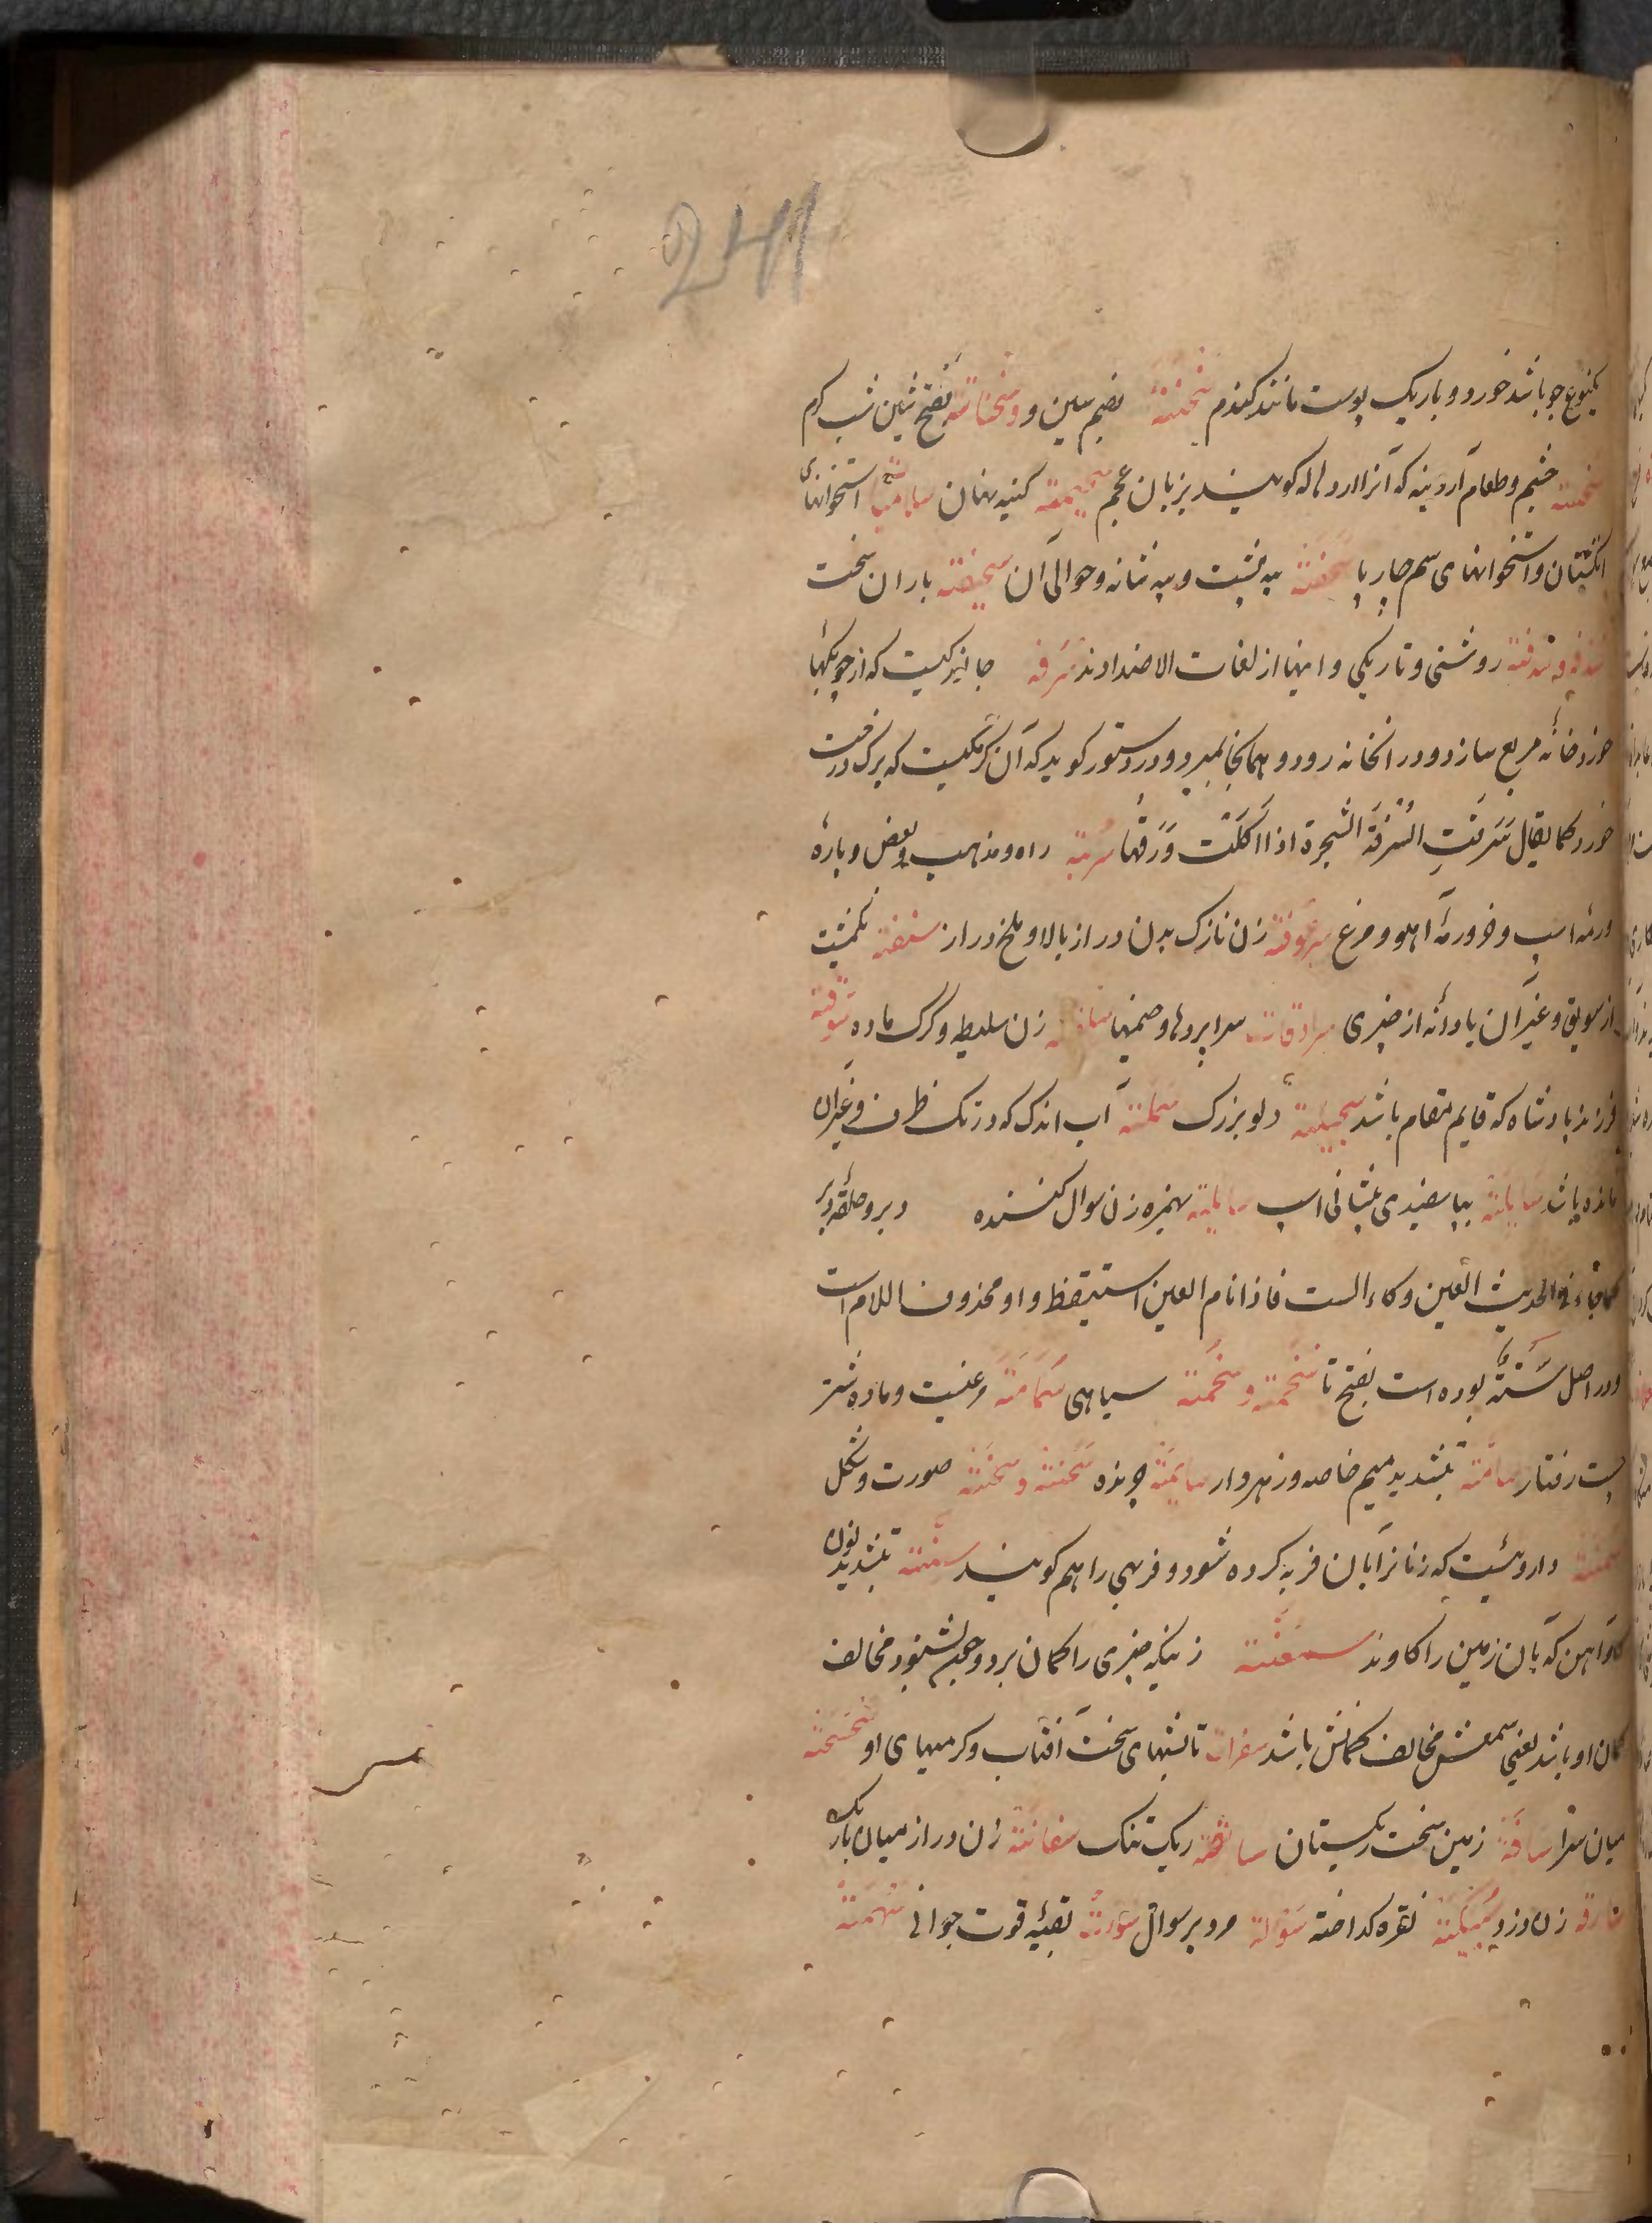 241
یکنوع جو باشد خورد و باریک پوست مانند کندم سُخنة بضم سین و و سخنانة بفتح شین شب کرم
سخینة خشم و طعام آردینه که آنرا اردهاله کویند بزبان عجم سخیمة کنیه نهان سلامیات استخوانهای
انکشتان و استخوانهای سم چارپا سحفة پیه پشت و پیه شانه و حوالی آن سحیفة باران سخت
سدفة و شدفة روشنی و تاریکی و اینها از لغات الاضدادند سرفه جانورکیست که از چوبکها
خود خانهٔ مربع سازد و در انخانه رود و همانجا بمیرد و در دستور کوید که آن کرمکیست که برک درخت
خورد کما یقال سَرَفَتِ السُرفَة الشجرة اذا اکَلَت وَرَقُها سربة راه و مذهب و بعض و پارهٔ
و رمهٔ اسپ و رمهٔ آهو و مرغ سرعوفة زن نازک بدن دراز بالا و ملخ دراز سفة یکمشت
از سویق و غیر آن یا دانه از چیزی سرادقات سراپردها و خیمها زن سلیطه و کرک ماده سوقة
فرزند پادشاه که قایم مقام باشد سجیلة دلو بزرک سملة آب اندک که در تک ظرف و غیر آن
مانده باشد سایلة بیا سفیدی پیشانی اسپ سایلة بهمزه زن سوال کننده دبر و حلقهٔ دبر
کما جاء فی الحدیث العین وکاء الست فاذا نام العین استیقظ و او محذوف اللام است
و در اصل سَتَهٌ بوده است بفتح تا سخمة و سخمة سیاهی سَمامَة مرغیست و ماده شتر
پست رفتار سامّة بتشدید میم خاصه و زهردار سایمة چرنده سَحنة و سَحَنة صورت و شکل
سمنة داروئیست که زنانرا بآن فربه کرده شود و فربهی را هم کویند سنّة بتشدید نون
کاو آهن که بآن زمین را کاوند سمعنّة زنیکه چیزی را کمان برد و چون بشنود مخالف
کمان او باشد یعنی سمعش مخالف کمانش باشد سفرات تابشهای سخت آفتاب و کرمیهای او سخسخة
میان سرا سافة زمین سخت ریکستان سایفة ریک تنک سیفانة زن دراز میان باریک
سارقه زن دزد سبیکة نقره کداخته سؤلة مرد پر سوال سؤرة بقیهٔ قوت جوانی سهمة